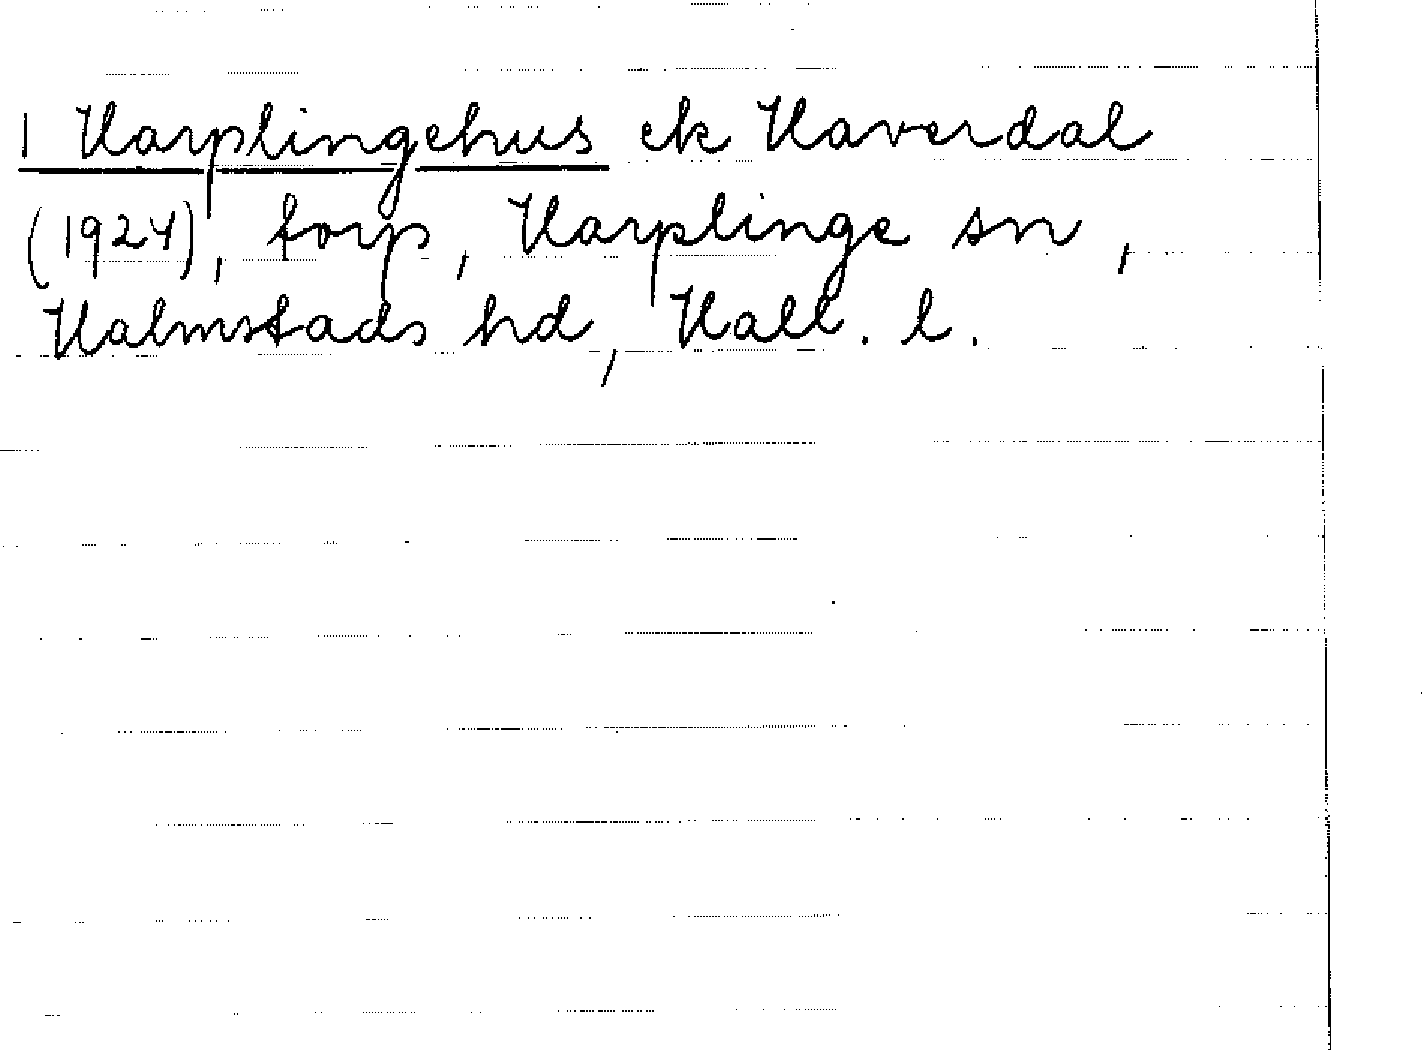 1 Harplingehus ek Haverdal
(1924), torp, Harplinge sn,
Halmstads hd, Hall. l.